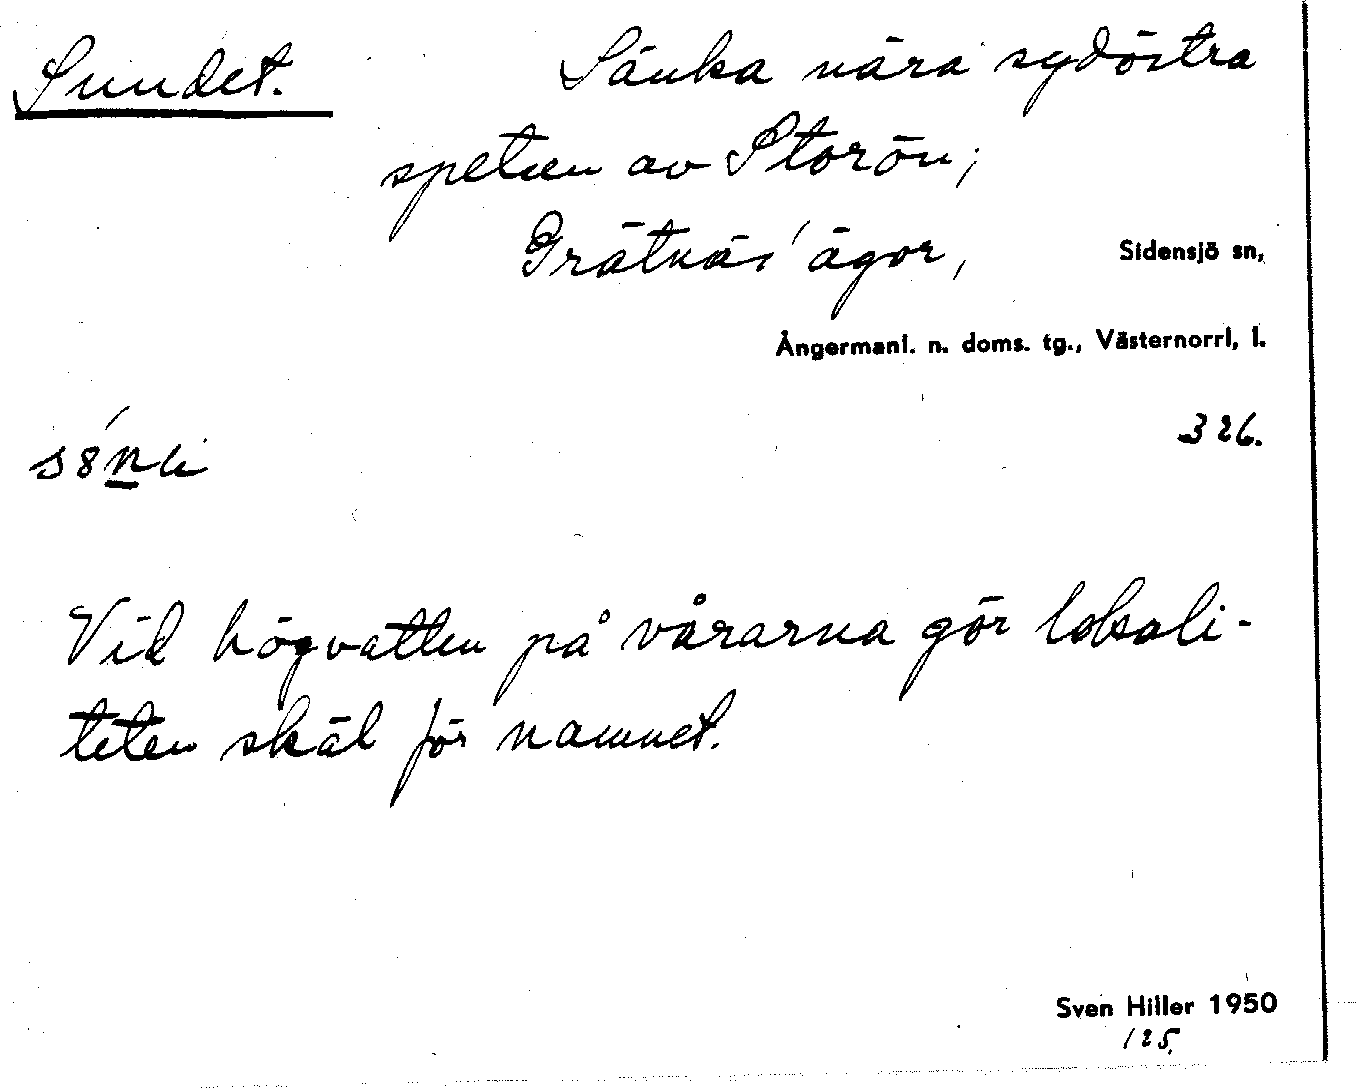 Sundet. Sänka nära sydöstra
spetsen av Storön;
Grätnäs' ägor, Sidensjö sn,
Ångermanl. n. doms. tg., Västernorrl, l.
326.
Vid högvatten på vårarna gör lokali-
teten skäl för namnet.
Sven Hiller 1950
125.